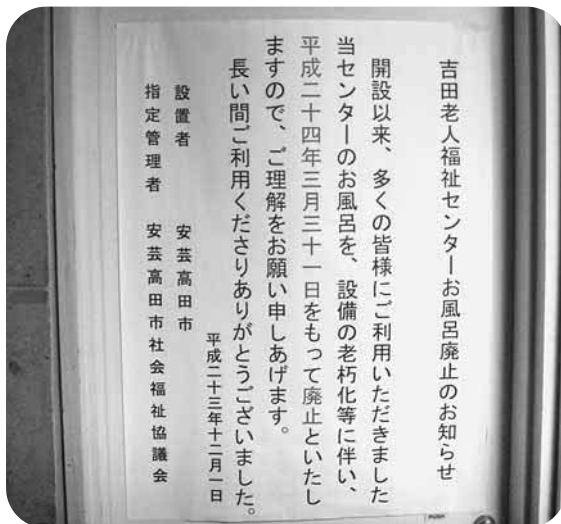 吉田老人福祉センターお風呂廃止のお知らせ
開設以来、多くの皆様にご利用いただきました
当センターのお風呂を、設備の老朽化等に伴い、
平成二十四年三月三十一日をもって廃止といたし
ますので、ご理解をお願い申しあげます。
長い間ご利用くださりありがとうございました。
平成二十三年十二月一日
設置者 安芸高田市
指定管理者 安芸高田市社会福祉協議会
PUSH